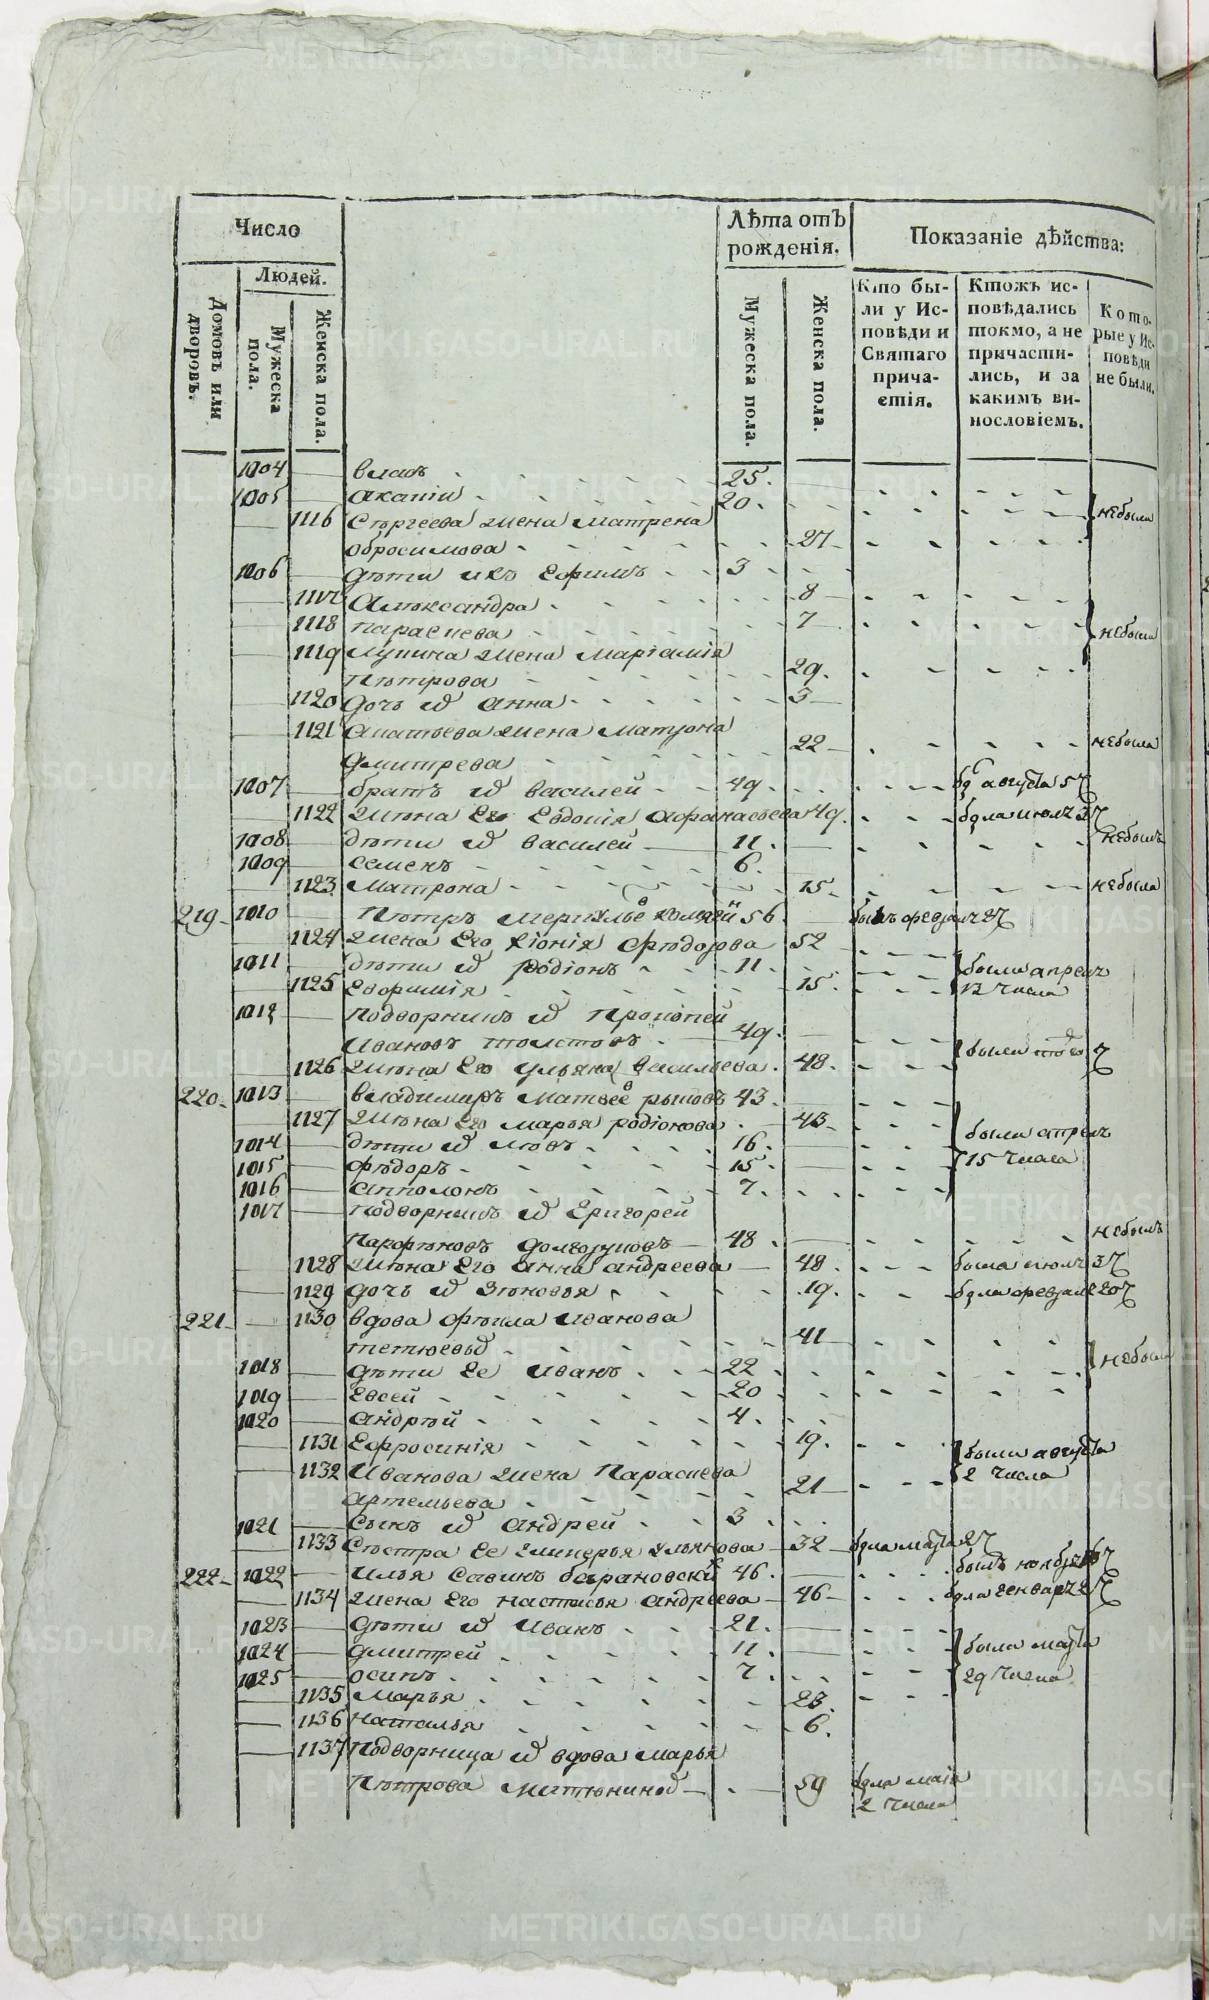 Число
Лѣта отъ рожденія.
Показаніе дѣйства:
Людей.
Домовъ или дворовъ.
Мужеска пола.
Женска пола.
Мужеска пола.
Женска пола.
Кто были у Исповѣди и Святаго причастія.
Ктожъ исповѣдались токмо, а не причастились, и за какимъ винословіемъ.
Которые у Исповѣди не были.
1004 — власъ 25.
1005 — 20.
— 1116 Сергеева жена матрена небыли
обросимова 27
1006 — дѣти ихъ Ефимъ 3
— 1117 Александра 8
— 1118 параскева 7 небыли
— 1119 Лупина жена Маріамія
петрова 29.
— 1120 дочь ей анна 3
— 1121 жена матрона
дмитрева 22 небыла
1007 — братъ ей василей 49. августа 5
— 1122 жена Его Евдокія афанасьева 49. была июля 3
1008 — дѣти ей василей 11. небылъ
1009 — семенъ 6.
— 1123 матрона 15. небыла
219 1010 — Петръ 56. былъ февраля 27
— 1124 жена Его хіонія федорова 52
1011 — дѣти ей родіонъ 11. были апреля
— 1125 Евфимія 15. 12 числа
1012 — подворникъ ей прокопей
Ивановъ толстовъ 49. были
— 1126 жена Его ульяна васильева 48.
220 1013 — владимиръ матвеевъ рыковъ 43
— 1127 жена Его марья родіонова 43 были апреля
1014 — дѣти ей левъ 16. 15 числа
1015 — федоръ 15.
1016 — апполонъ 7.
1017 — подворникъ ей Григорей
Парфеновъ долгоруковъ 48. небылъ
— 1128 жена Его анна андреева 48. была июля 3
— 1129 дочь ей зеновья 19. была февраля 20
221 — 1130 вдова фекла иванова
41 небыли
1018 — дѣти Ее Иванъ 22
1019 — Евсей 20
1020 — андрей 4.
— 1131 Ефросинія 19. были августа
— 1132 Иванова жена Параскева 2 числа
артемьева 21
1021 — сынъ ей андрей 3
— 1133 сестра Ее ульянова 32 была марта 27
222 1022 — Илья Савинъ барановскій 46. былъ ноября
— 1134 жена Его настасья андреева 46 была генваря 2
1023 — дѣти ей Иванъ 21. были марта
1024 — дмитрей 11. 29 числа
1025 — осипъ 7.
— 1135 марья 23.
— 1136 наталья 6.
— 1137 подворница ей вдова марья
петрова 59 была маія
2 числа
METRIKI.GASO-URAL.RU